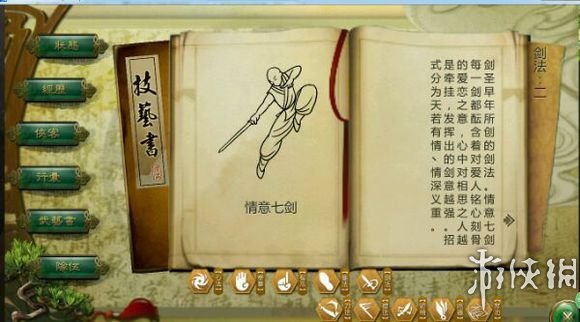 狀態
經歷
俠客
行囊
武藝書
隊伍
技藝書
情意七剑
剑法：二
剑圣早年所创的剑法。情意七剑
每一剑都酝含着对爱人铭心刻骨
的爱恋之意，心中对相思之人越
是牵挂，发挥出的剑意越强。招
式分为天若有情、情深义重。
游侠网